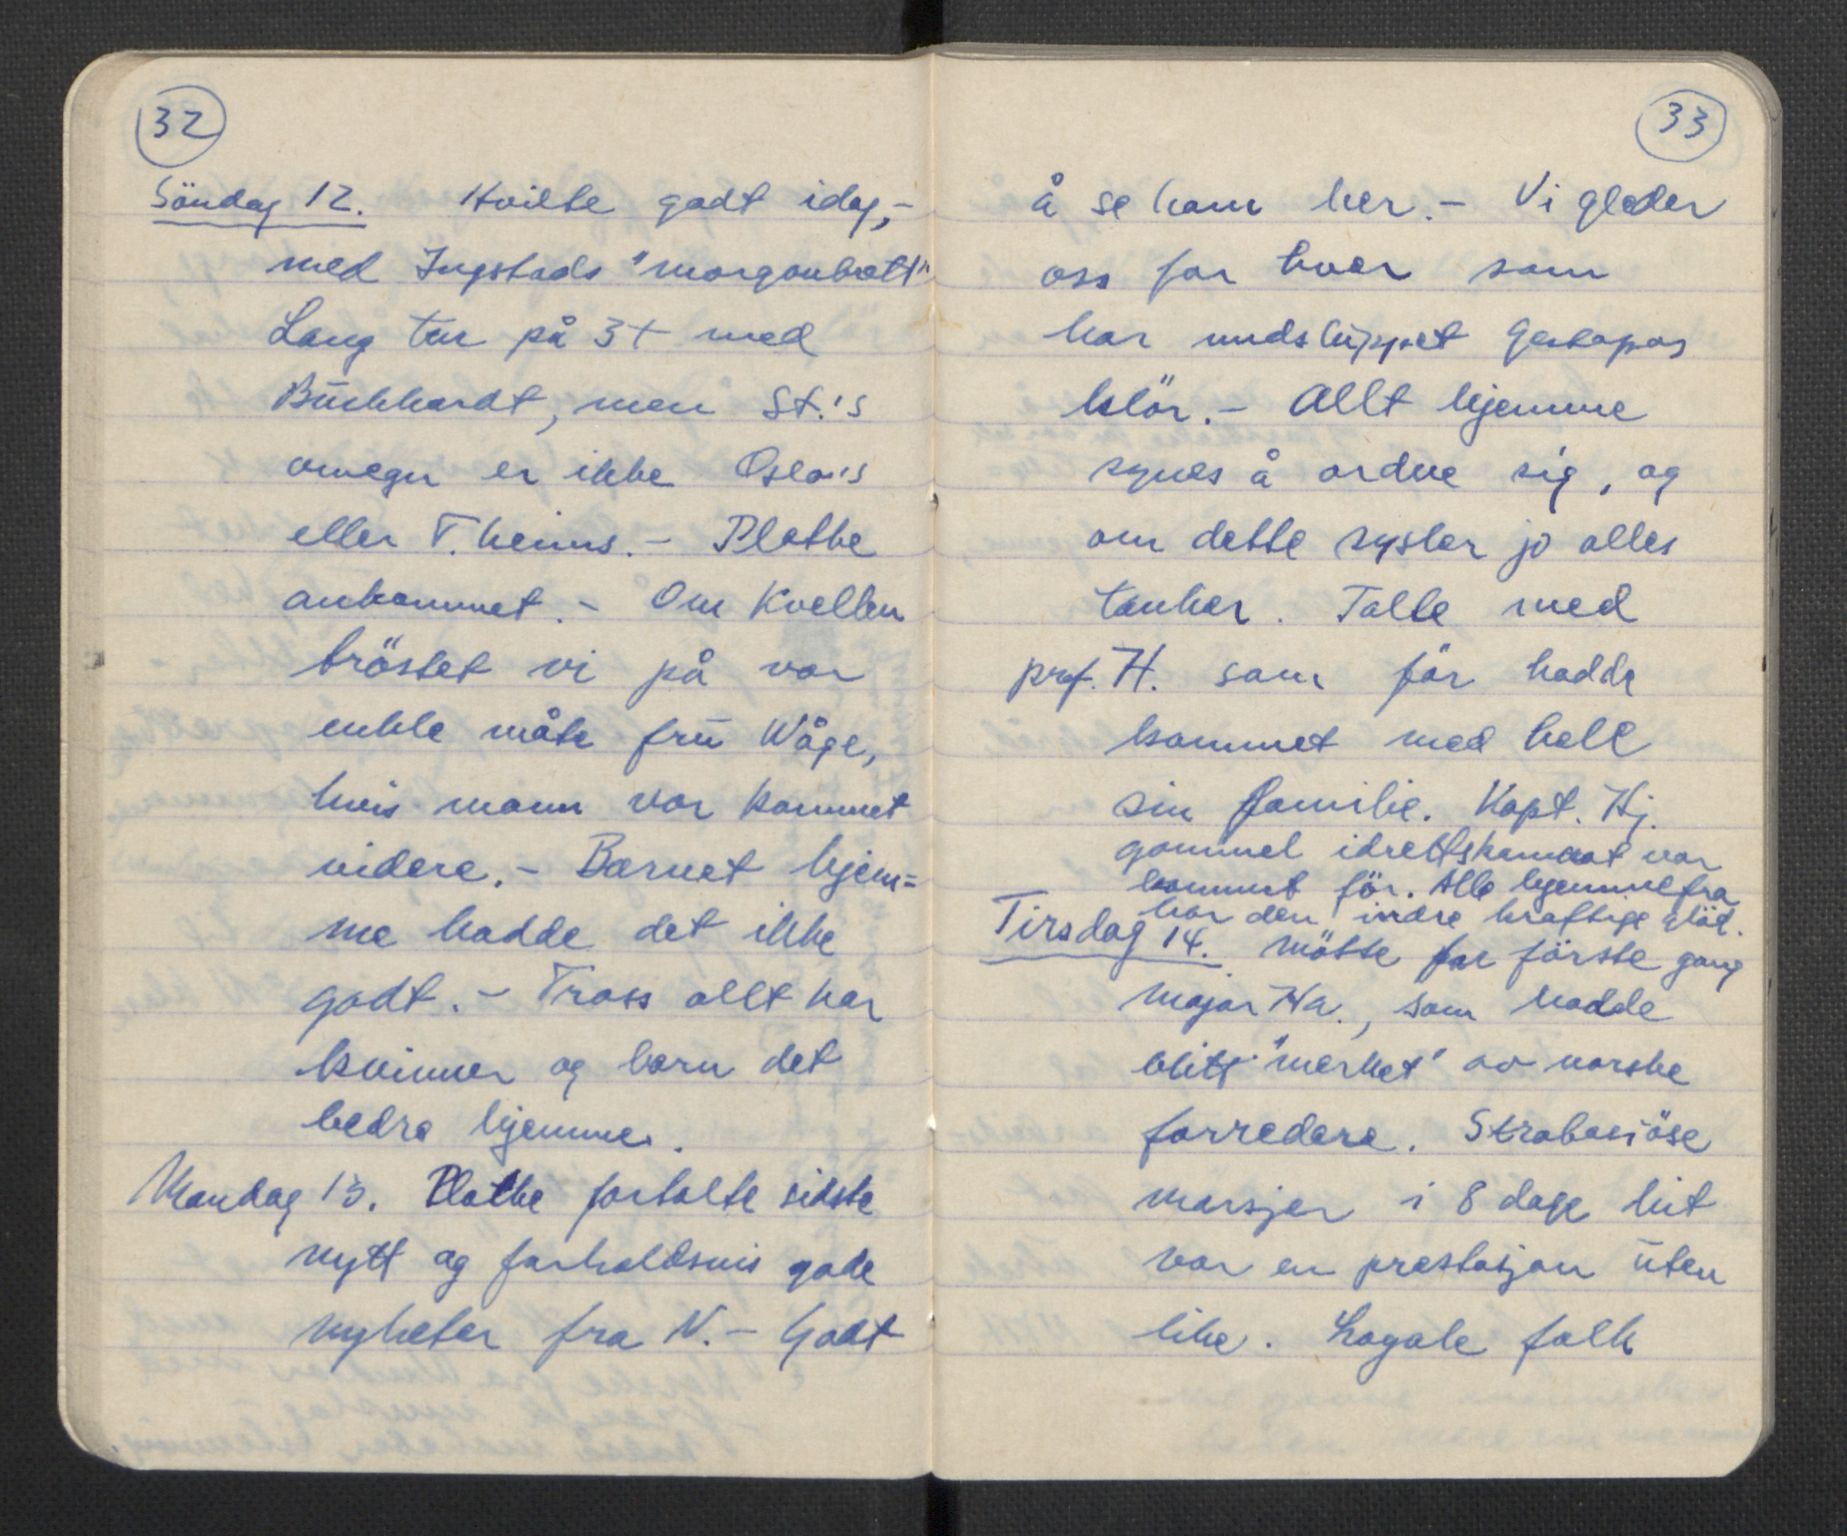 32
Söndag 12. Hvilte godt idag,-
med Ingstads "morgonbrett"
Lang tur på 3t med
Burkhardt, men St.'s
omegn er ikke Oslo's
eller T.heims. - Plathe
ankommet. - Om Kvellen
tröstet vi på vor
enkle måte fru Wåge,
hvis mann var kommet
videre. - Barnet hjem=
me hadde det ikke
godt. - Tross allt har
kvinner og barn det
bedre hjemme.
Mandag 13. Plathe fortalte sidste
nytt og forholdsvis gode
nyheter fra N. - Godt
33
å se ham her. - Vi gleder
oss for hver som
har undsluppet Gestapos
klör. - Allt hjemme
synes å ordne sig, og
om dette sysler jo alles
tanker. Talte med
prof. H. som för hadde
kommet med hele
sin familie. Kapt. Hj.
gammel idrettskamerat var
kommet för. Alle hjemmefra
har den indre kraftige glöd.
Tirsdag 14. Mötte for förste gang
major Ha., som hadde
blitt "merket" av norske
forredere. Strabasiöse
marsjer i 8 dage hit
var en prestasjon uten
like. Logale folk